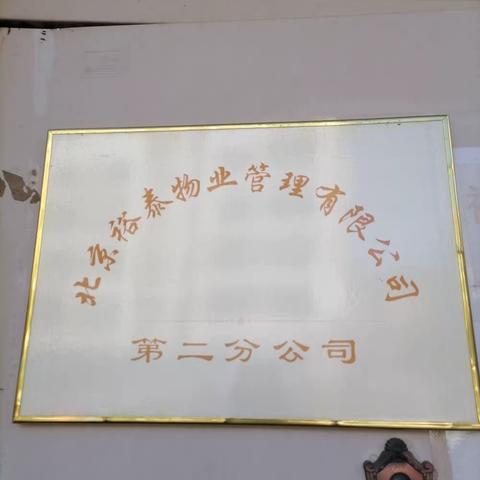 北京裕泰物业管理有限公司
第二分公司